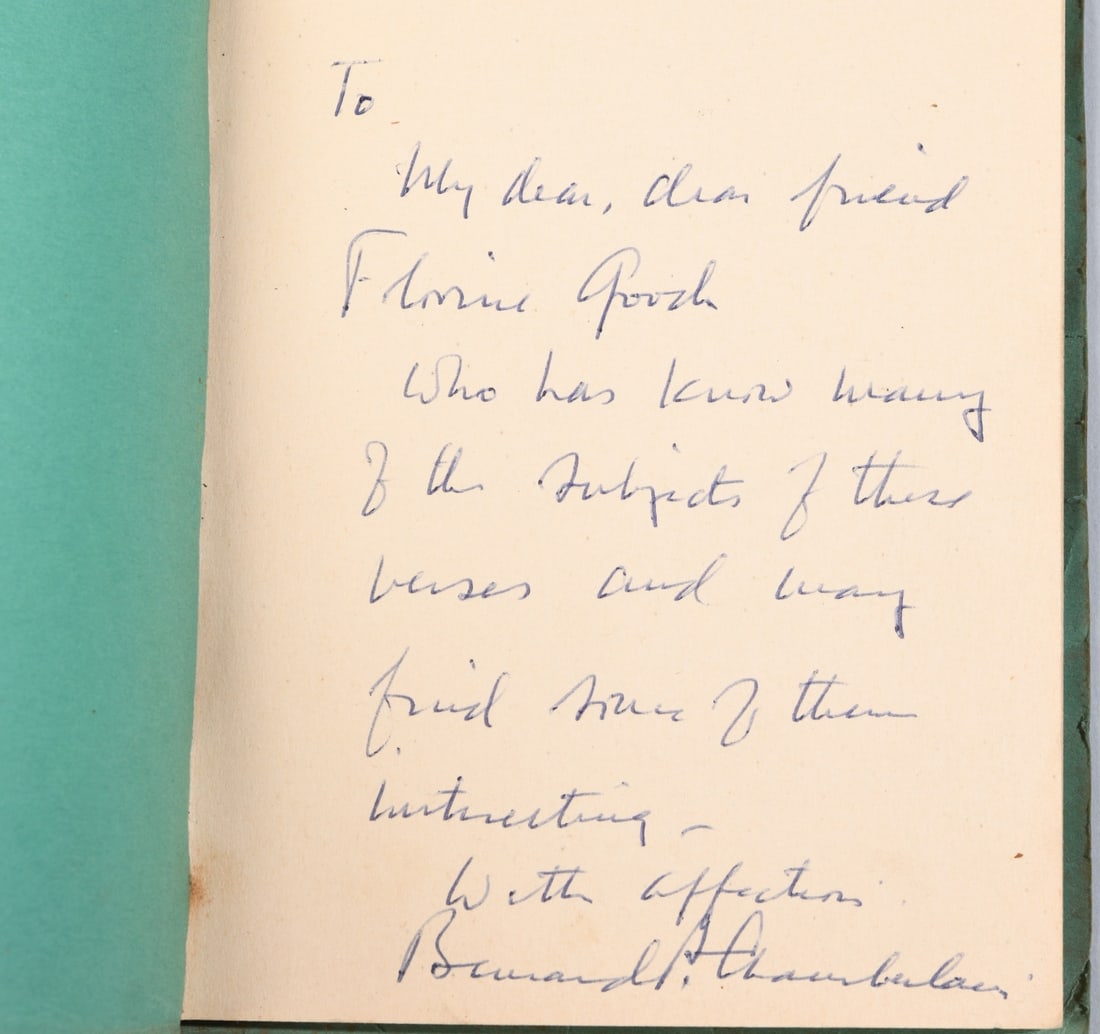 To
My dear, dear friend
Florine Gooch
who has know many
of the subjects of these
verses and may
find some of them
interesting –
With affection
Bernard P. Chamberlain